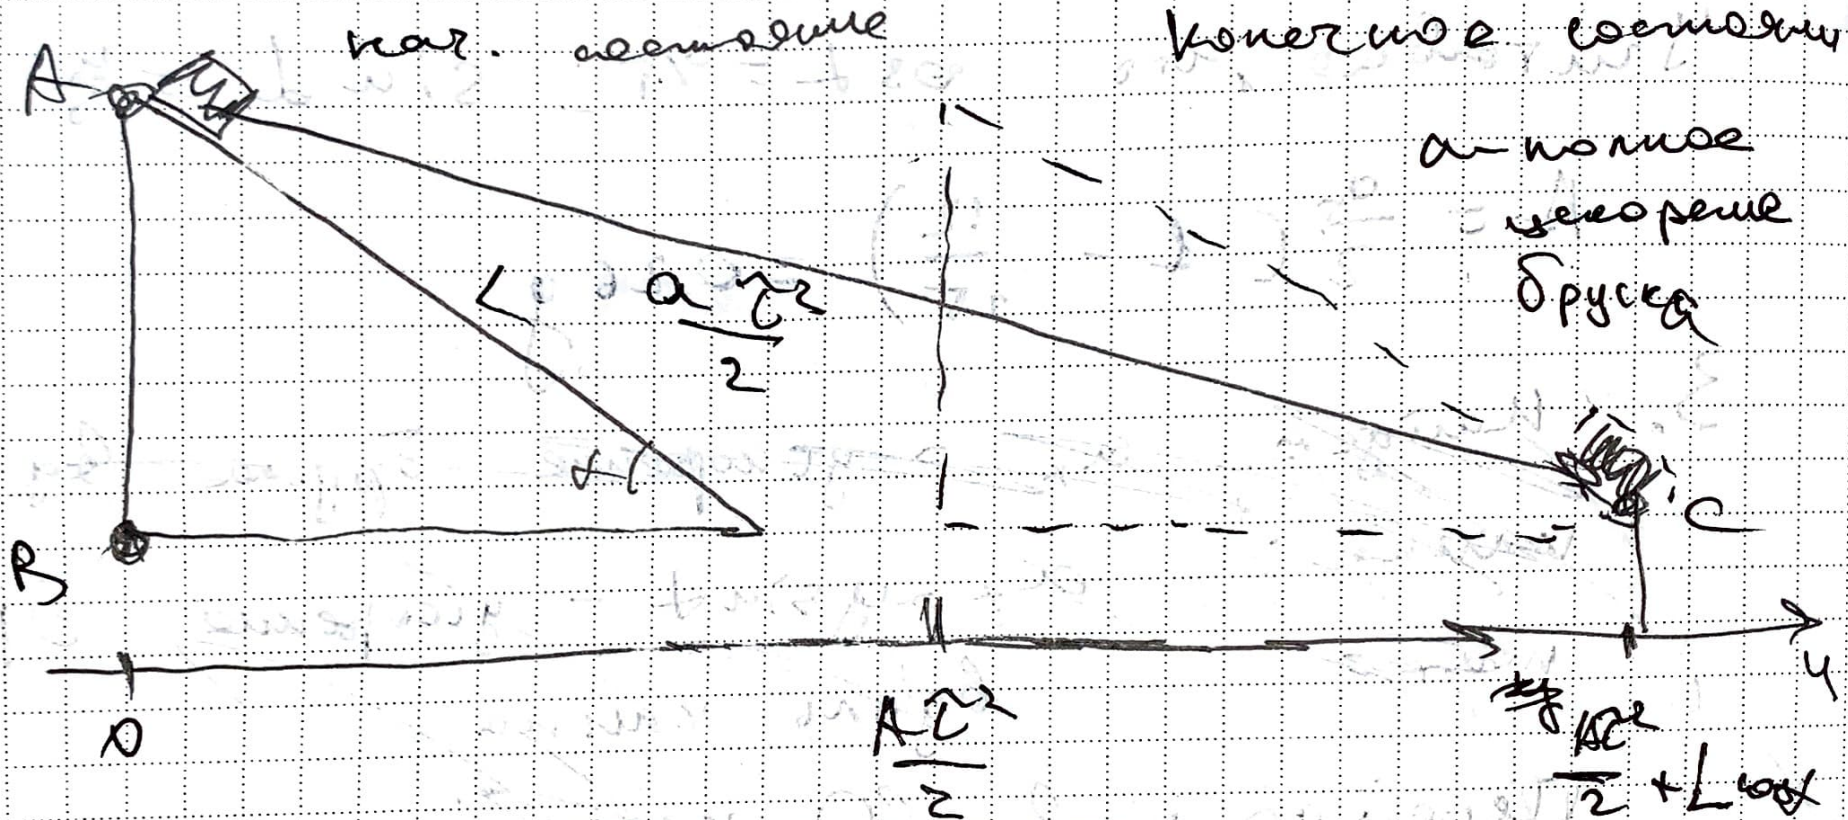 нач. состояние
Конечное состояни
A
m
a - полное
ускорение
бруска
L
aτ²/2
α
C
B
0
Aτ²/2
Aτ²/2 + L cosα